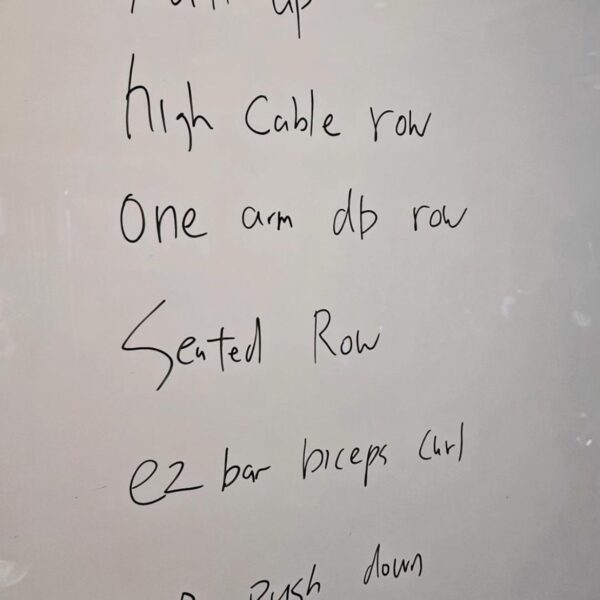 up
high Cable row
One arm db row
Seated Row
ez bar biceps Curl
Push down